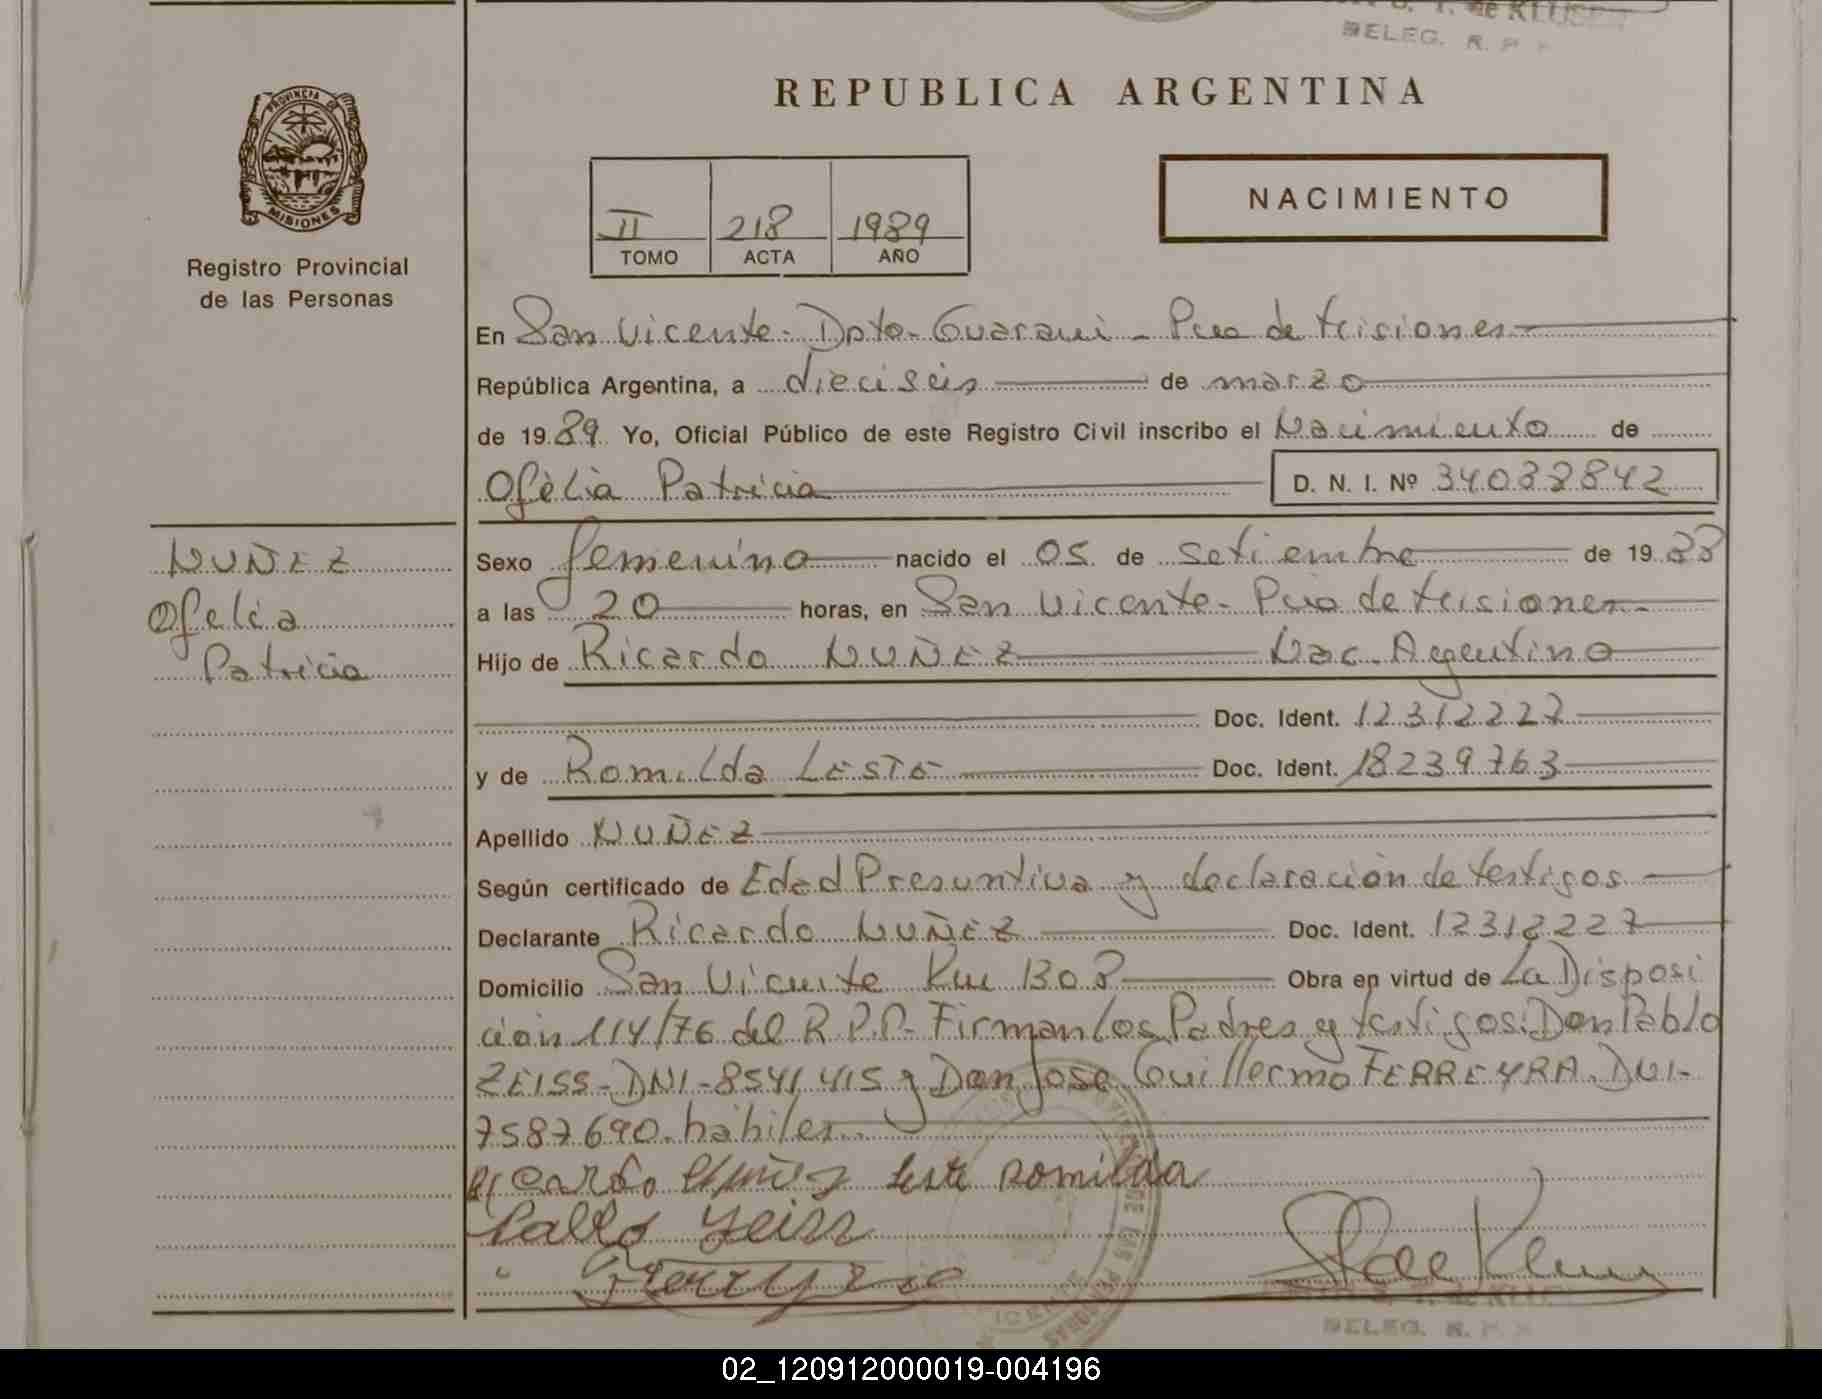 DELEG. R. P.
REPUBLICA ARGENTINA
PROVINCIA DE
MISIONES
Registro Provincial
de las Personas
II 218 1989
TOMO ACTA AÑO
NACIMIENTO
En San Vicente - Dpto - Guarani - Pcia de Misiones
República Argentina, a dieciseis de marzo
de 1989 Yo, Oficial Público de este Registro Civil inscribo el Nacimiento de
Ofelia Patricia D. N. I. Nº 34038842
NUÑEZ
Ofelia
Patricia
Sexo femenino nacido el 05 de setiembre de 1988
a las 20 horas, en San Vicente - Pcia de Misiones
Hijo de Ricardo NUÑEZ Nac. Argentino
Doc. Ident. 12312227
y de Romilda LESTE Doc. Ident. 18239763
Apellido NUÑEZ
Según certificado de Edad Presuntiva y declaración de testigos
Declarante Ricardo NUÑEZ Doc. Ident. 12312227
Domicilio San Vicente Km 1308 Obra en virtud de La Disposi
ción 114/76 del R.P.P. Firman los Padres y testigos: Don Pablo
ZEISS - DNI - 8541415 y Don Jose Guillermo FERREYRA. DNI -
7587690. hábiles
Ricardo Nuñez Leste romilda
Pablo Zeiss
Ferreyra
DELEG. R.
02_120912000019-004196